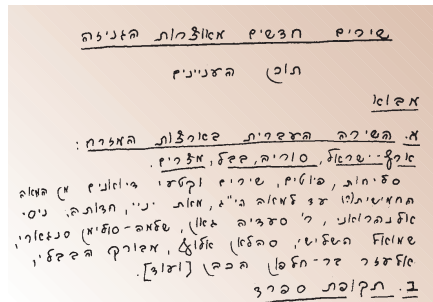 שירים חדשים מאוצרות הגניזה
תוכן העניינים
מבוא
א. השירה העברית בארצות המזרח:
ארץ-ישראל, סוריה, בבל, מצרים.
סליחות, פיוטים, שירים וקטעי דיואנים מן המאה
החמישית(?) עד למאה הי"ג, מאת יניי, חדותה, ניסי
אלנהרואני, ר' סעדיה גאון, שלמה-סולימן סנג'ארי,
שמואל השלישי, סהלאן אלוף, מבורך הבבלי,
אלעזר בר-חלפון הכהן [ועוד].
ב. תקופת ספרד